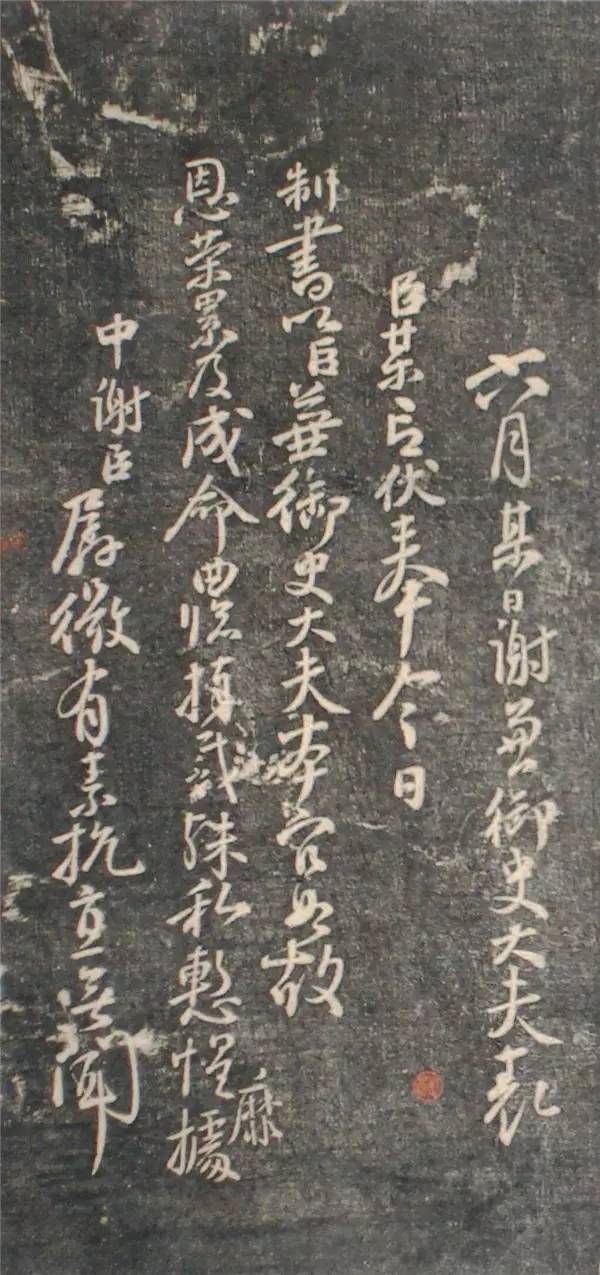 六月某日謝兼御史大夫表
臣某言伏奉今日
制書以臣兼御史大夫本官如故
恩榮累及成命曲臨捧戴殊私慙惶靡據
中謝臣孱微有素抗直無聞